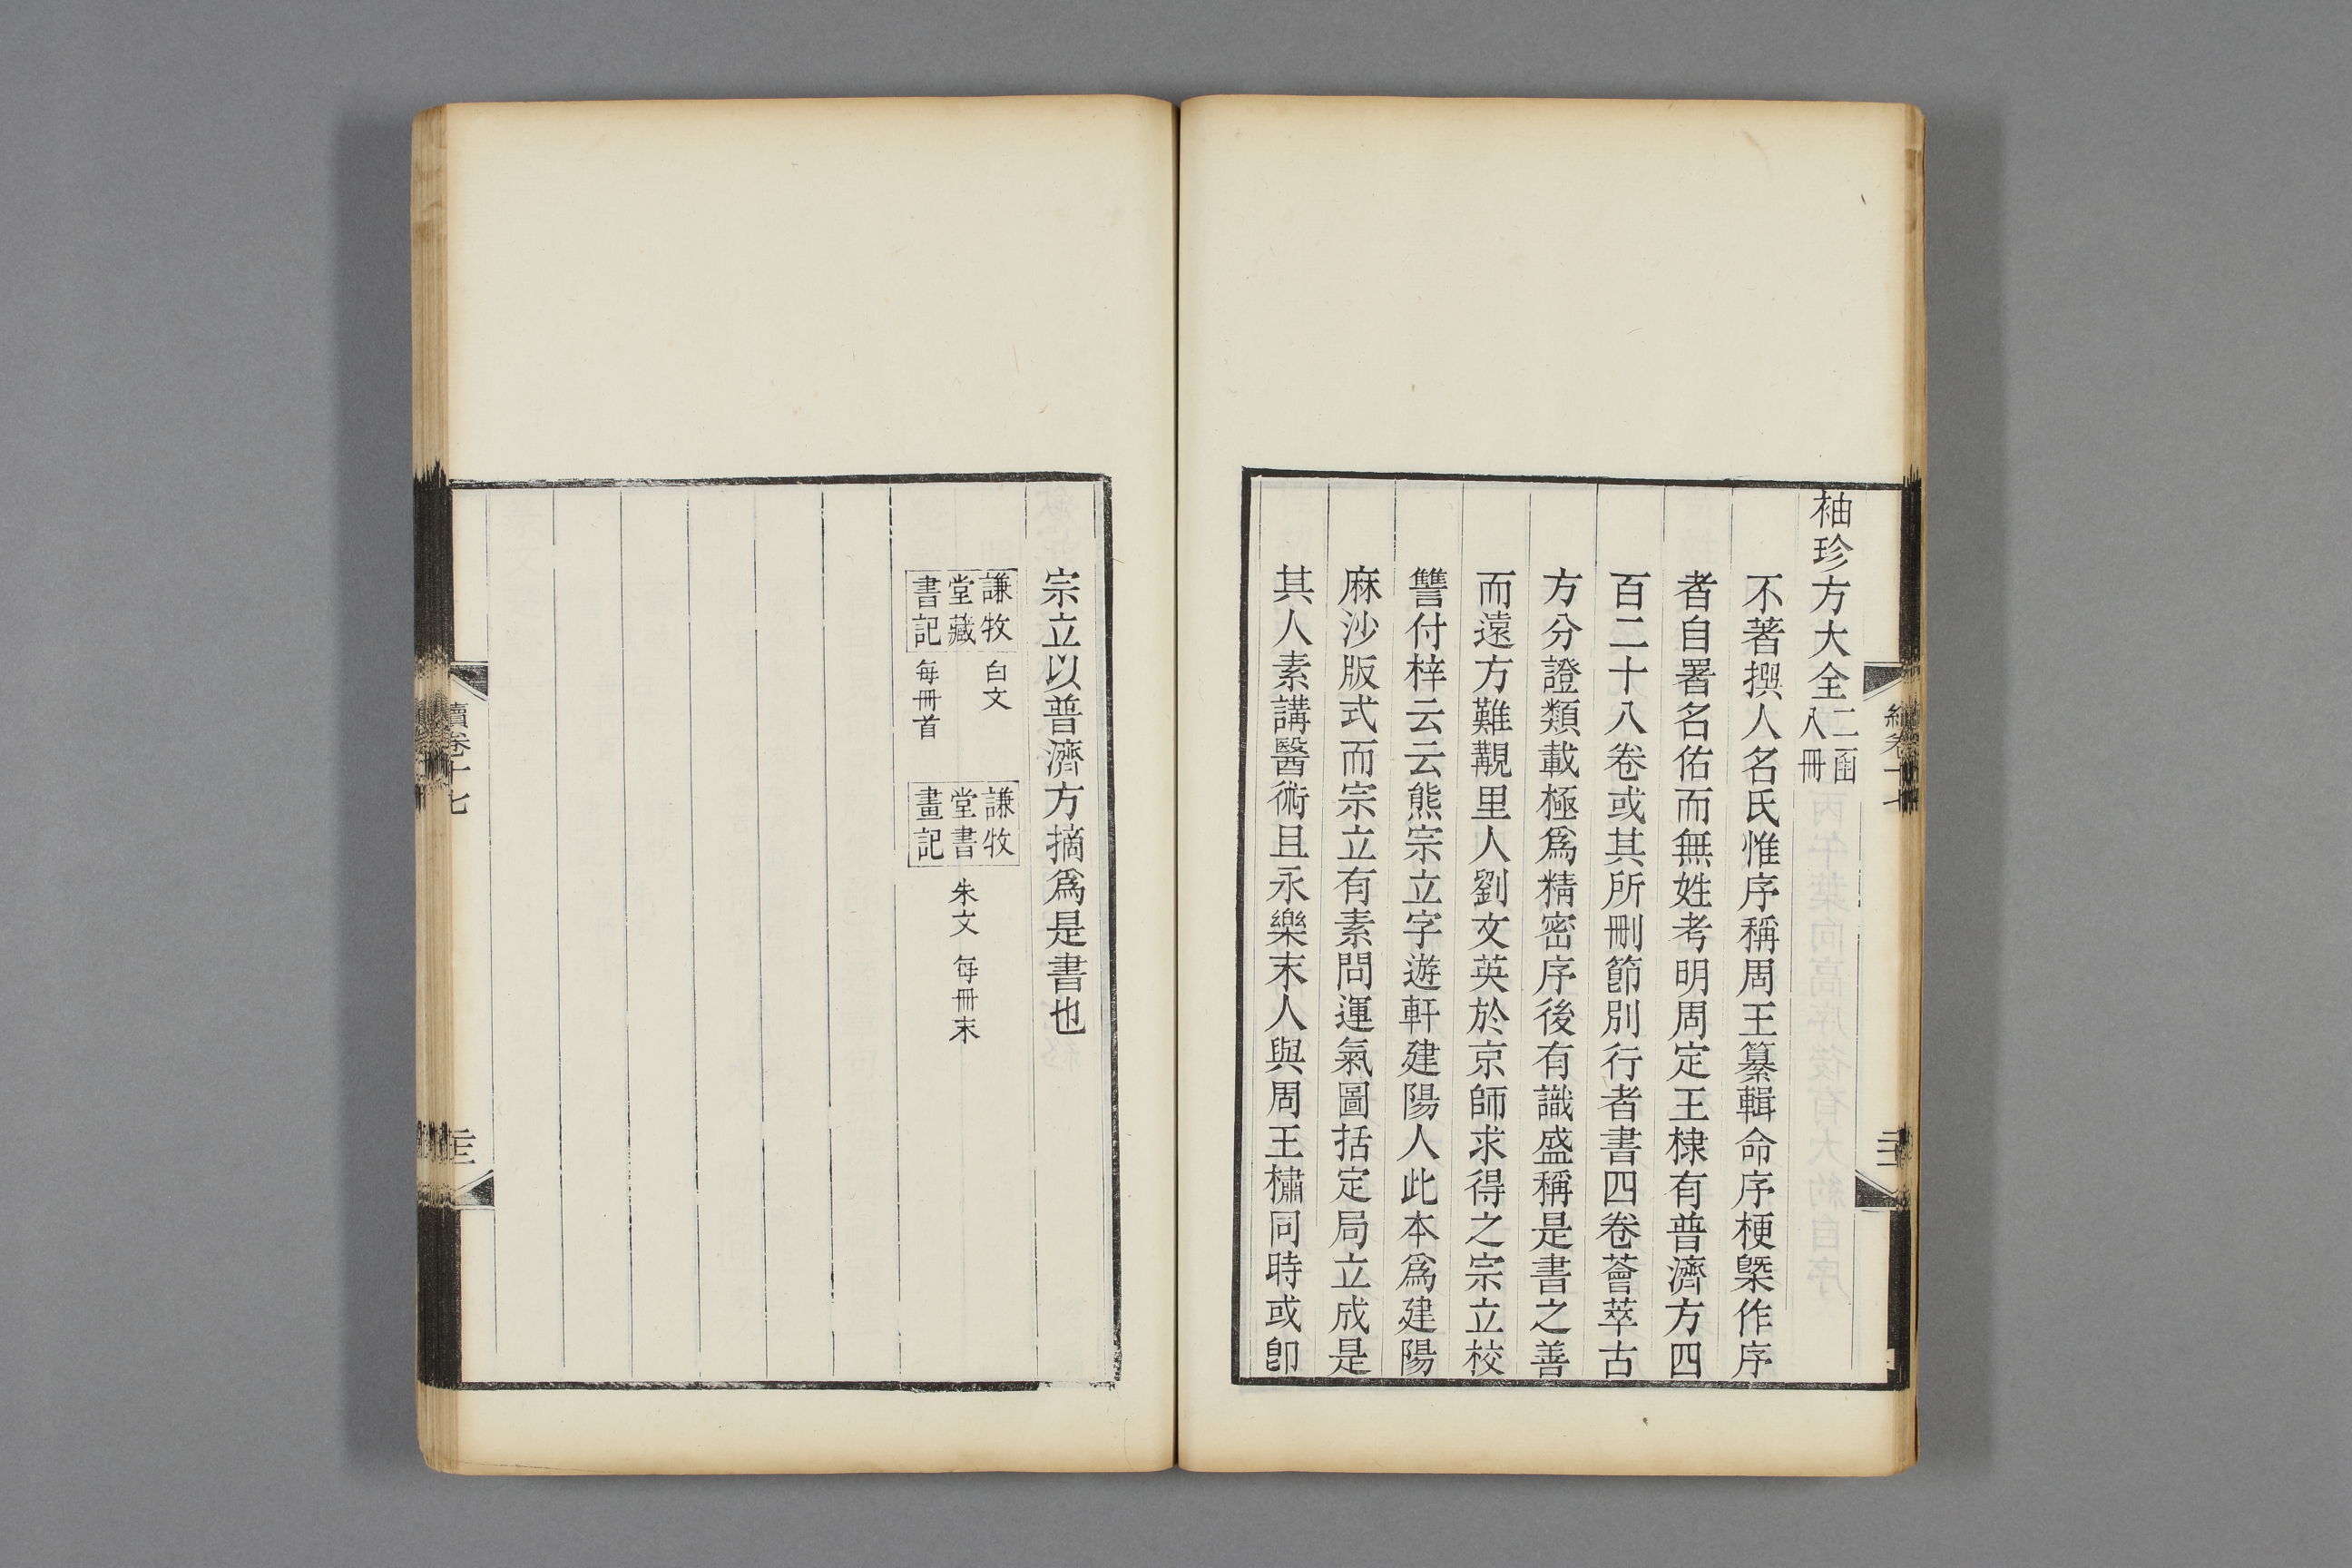 袖珍方大全二函八冊
不著撰人名氏惟序稱周王纂輯命序梗槩作序
者自署名佑而無姓考明周定王棣有普濟方四
百二十八卷或其所刪節別行者書四卷薈萃古
方分證類載極爲精密序後有識盛稱是書之善
而遠方難覯里人劉文英於京師求得之宗立校
讐付梓云云熊宗立字遊軒建陽人此本爲建陽
麻沙版式而宗立有素問運氣圖括定局立成是
其人素講醫術且永樂末人與周王橚同時或卽
宗立以普濟方摘爲是書也
謙牧
堂藏
書記
白文
每冊首
謙牧
堂書
畫記
朱文 每冊末
續卷十七